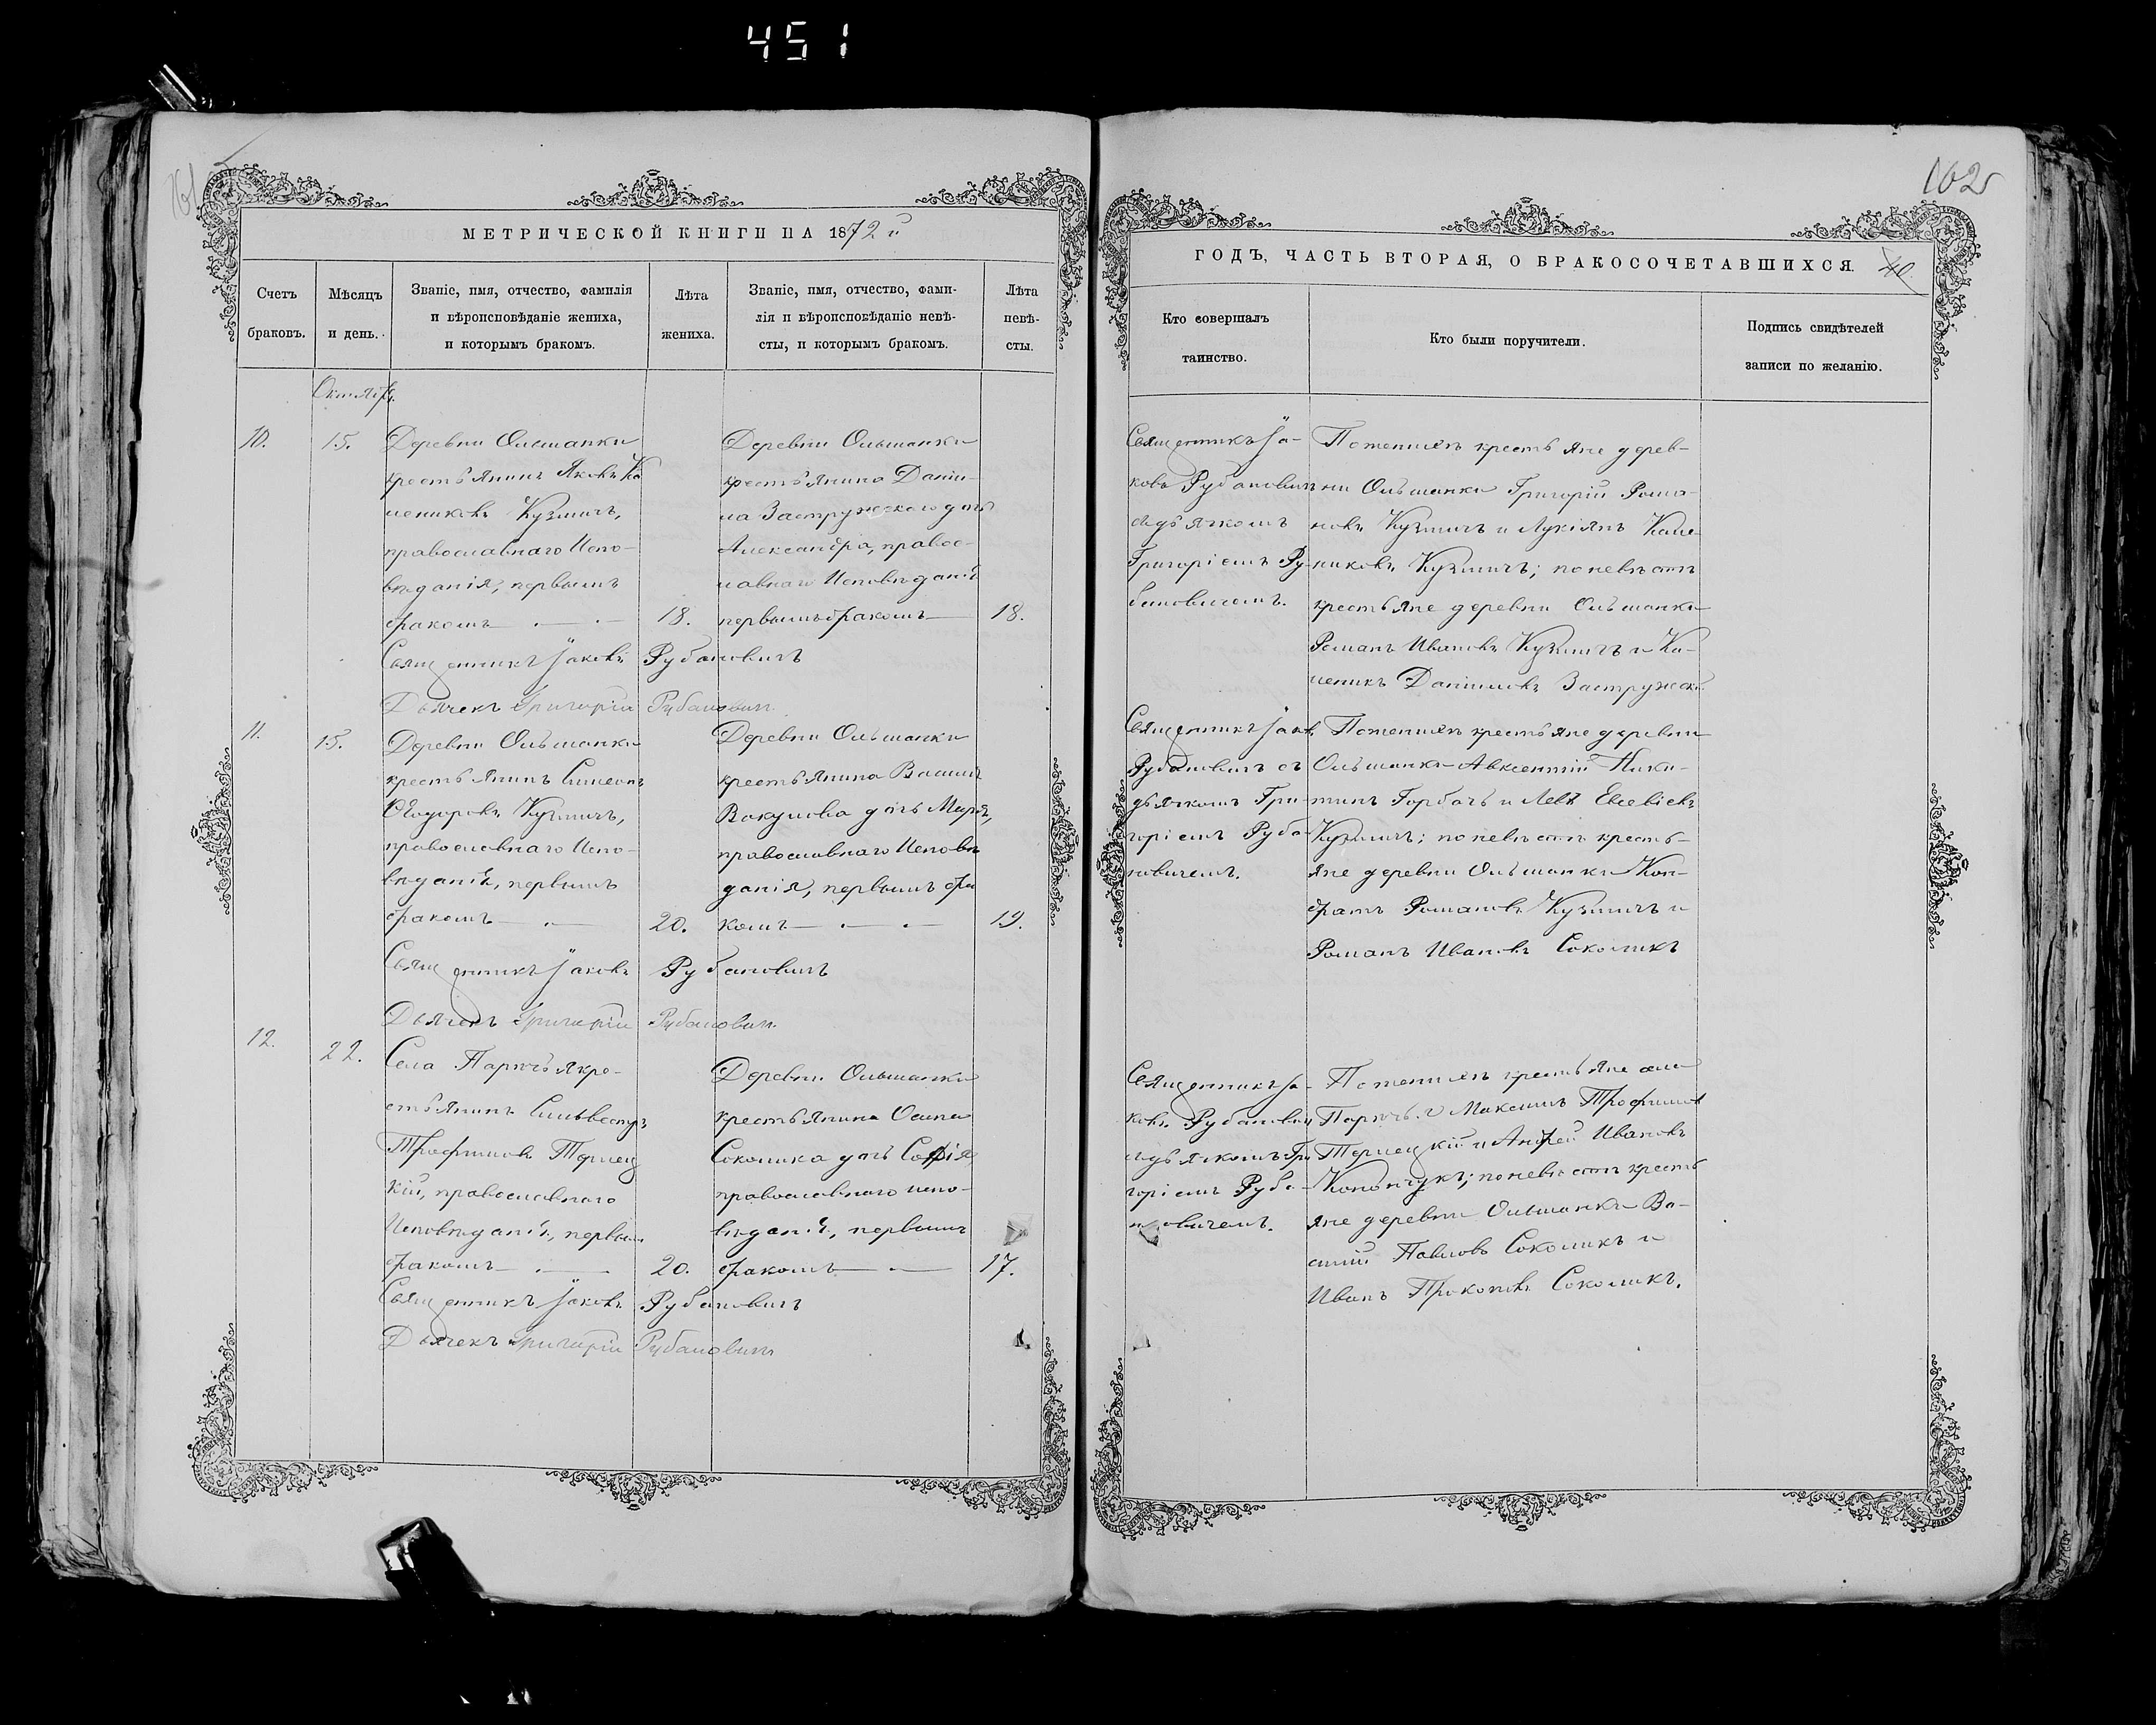 451
161
162
МЕТРИЧЕСКОЙ КНИГИ НА 1872й
Счетъ браковъ.
Мѣсяцъ и день.
Званіе, имя, отчество, фамилія
и вѣроисповѣданіе жениха,
и которымъ бракомъ.
Лѣта жениха.
Званіе, имя, отчество, фами-
лія и вѣроисповѣданіе невѣ-
сты, и которымъ бракомъ.
Лѣта
невѣ-
сты.
Октября
10.
15.
Деревни Ольшанки
крестьянинъ Яковъ Ка
лениковъ Кузмичъ,
православнаго Испо-
вѣданія, первымъ
бракомъ
18.
Деревни Ольшанки
крестьянина Даніи-
ла Застружского дочь
Александра, правос-
лавнаго Исповѣданія
первымъ бракомъ
18.
Священникъ Іаковъ Рубановичъ
Дьячекъ Григорій Рубановичъ
11.
15.
Деревни Ольшанки
крестьянинъ Симеонъ
Ѳеодоровъ Кузмичъ,
православнаго Испо-
вѣданія, первымъ
бракомъ
20.
Деревни Ольшанки
крестьянина Василія
Вакулова дочь Марія,
православнаго Исповѣ
данія, первымъ бра
комъ
19.
Священникъ Іаковъ Рубановичъ
Дьячекъ Григорій Рубановичъ
12.
22.
Села Паричъ я кре-
стьянинъ Сильвестръ
Трофимовъ Терлец
кій, православнаго
Исповѣданія, первым
бракомъ
20.
Деревни Ольшанки
крестьянина Осипа
Соколика дочь Софія,
православнаго испо-
вѣданія, первымъ
бракомъ
17.
Священникъ Іаковъ Рубановичъ
Дьячекъ Григорій Рубановичъ
ГОДЪ, ЧАСТЬ ВТОРАЯ, О БРАКОСОЧЕТАВШИХСЯ.
40.
Кто совершалъ
таинство.
Кто были поручители.
Подпись свидѣтелей
записи по желанію.
Священникъ Іа-
ковъ Рубановичъ
съ дьячкомъ
Григоріемъ Ру-
бановичемъ.
По женихѣ крестьяне дерев-
ни Ольшанки Григорій Рома-
новъ Кузмичъ и Лукіянъ Кале-
никовъ Кузмичъ; по невѣстѣ
крестьяне деревни Ольшанки
Романъ Ивановъ Кузмичъ и Ка-
леникъ Даніиловъ Застружскій
Священникъ Іаков.
Рубановичъ съ
дьячкомъ Гри-
горіемъ Руба-
новичемъ.
По женихѣ крестьяне деревни
Ольшанки Авксентій Ники-
тинъ Горбачъ и Левъ Евсевіевъ
Кузмичъ; по невѣстѣ кресть-
яне деревни Ольшанки Кон-
дратъ Романовъ Кузмичъ и
Романъ Ивановъ Соколикъ
Священникъ Іа-
ковъ Рубанович
съ дьячкомъ Гри
горіемъ Руба-
новичемъ.
По женихѣ крестьяне села
Паричъ я Максимъ Трофимов
Терлецкій и Андрей Ивановъ
Конончукъ; по невѣстѣ кресть
яне деревни Ольшанки Ва-
силій Павловъ Соколикъ и
Иванъ Прокоповъ Соколикъ.